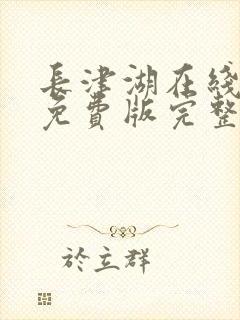 長津湖在綫
免費版完整
於立群